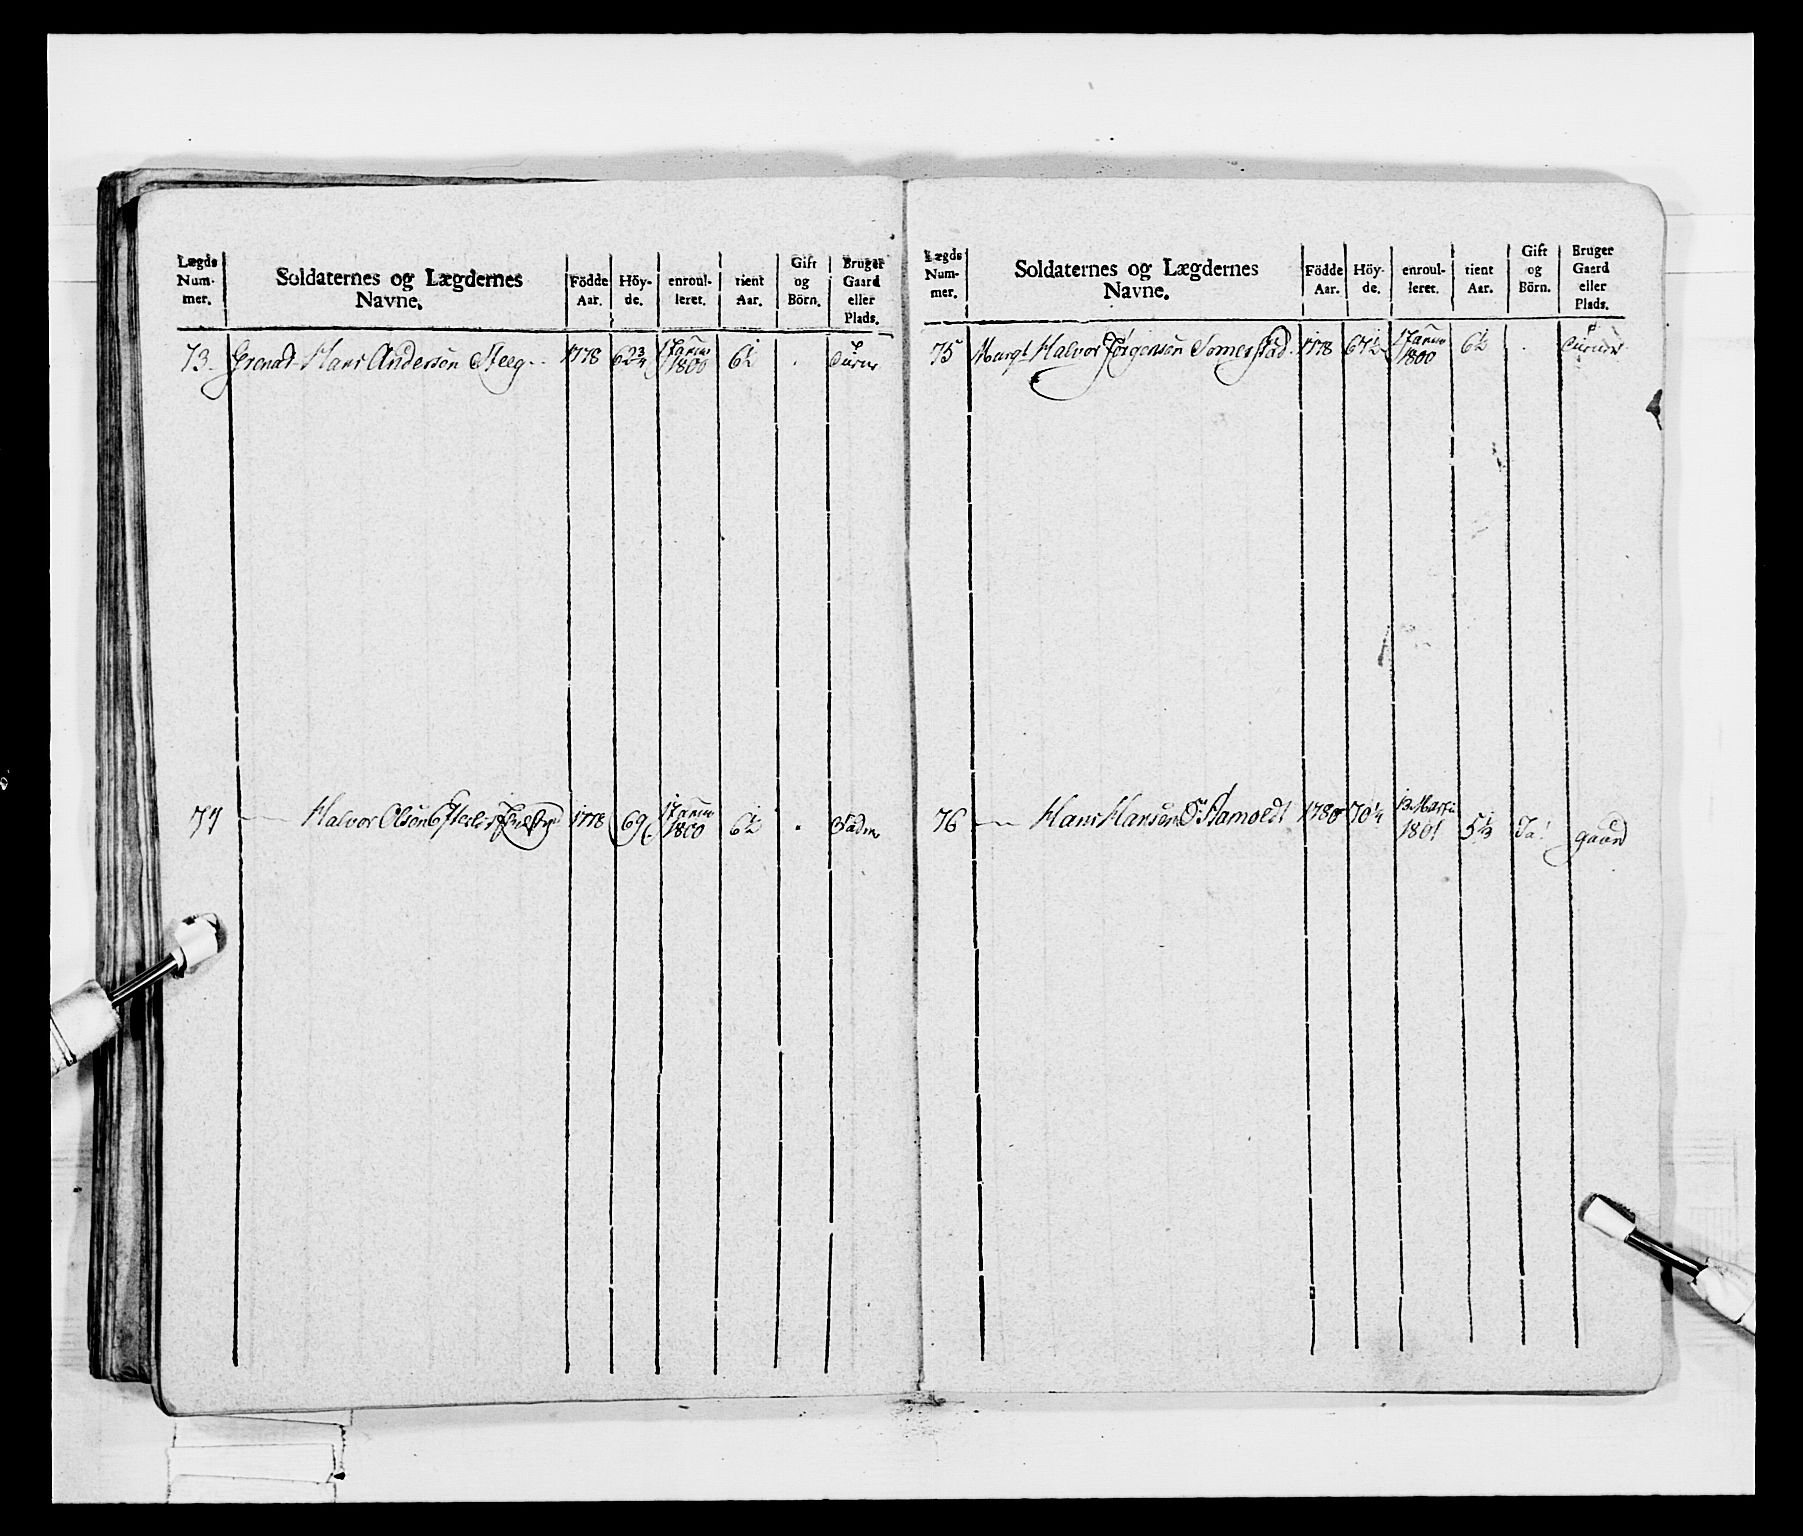 Lægds Num- mer.
Soldaternes og Lægdernes Navne.
Födde Aar.
Höy- de.
enroul- leret.
tient Aar.
Gift og Börn.
Bruger Gaard eller Plads.
73. Grenad. Hans Anderson 1778 62 3/4 1800 6 1/2 .
74 Halvor Olson 1778 69 1800 6 1/2 .
Lægds Num- mer.
Soldaternes og Lægdernes Navne.
Födde Aar.
Höy- de.
enroul- leret.
tient Aar.
Gift og Börn.
Bruger Gaard eller Plads.
75 Halvor Jørgensøn 1778 67 1/2 1800 6 1/2 .
76 Hans Hansøn 1780 70 1/4 1801 5 1/3 Ja! gaard